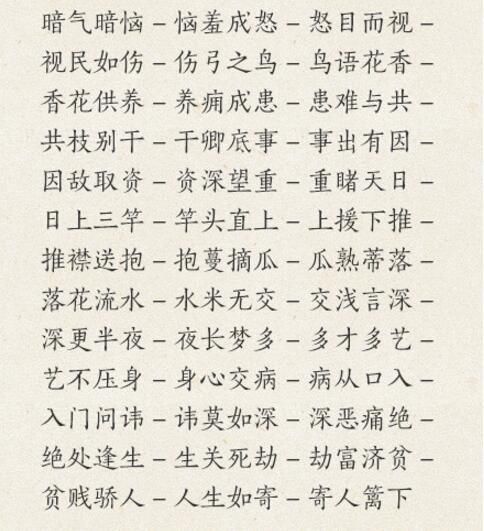 暗气暗恼－恼羞成怒－怒目而视－
视民如伤－伤弓之鸟－鸟语花香－
香花供养－养痈成患－患难与共－
共枝别干－干卿底事－事出有因－
因敌取资－资深望重－重睹天日－
日上三竿－竿头直上－上援下推－
推襟送抱－抱蔓摘瓜－瓜熟蒂落－
落花流水－水米无交－交浅言深－
深更半夜－夜长梦多－多才多艺－
艺不压身－身心交病－病从口入－
入门问讳－讳莫如深－深恶痛绝－
绝处逢生－生关死劫－劫富济贫－
贫贱骄人－人生如寄－寄人篱下